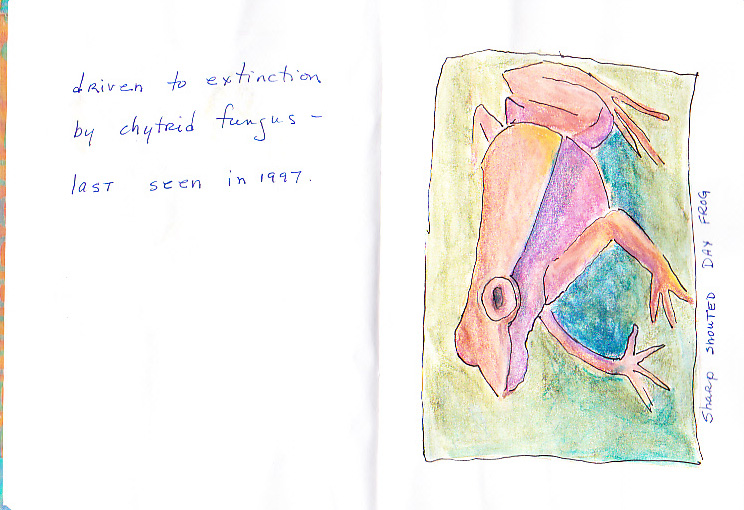 driven to extinction
by chytrid fungus –
last seen in 1997.
Sharp SNOUTED DAY FROG